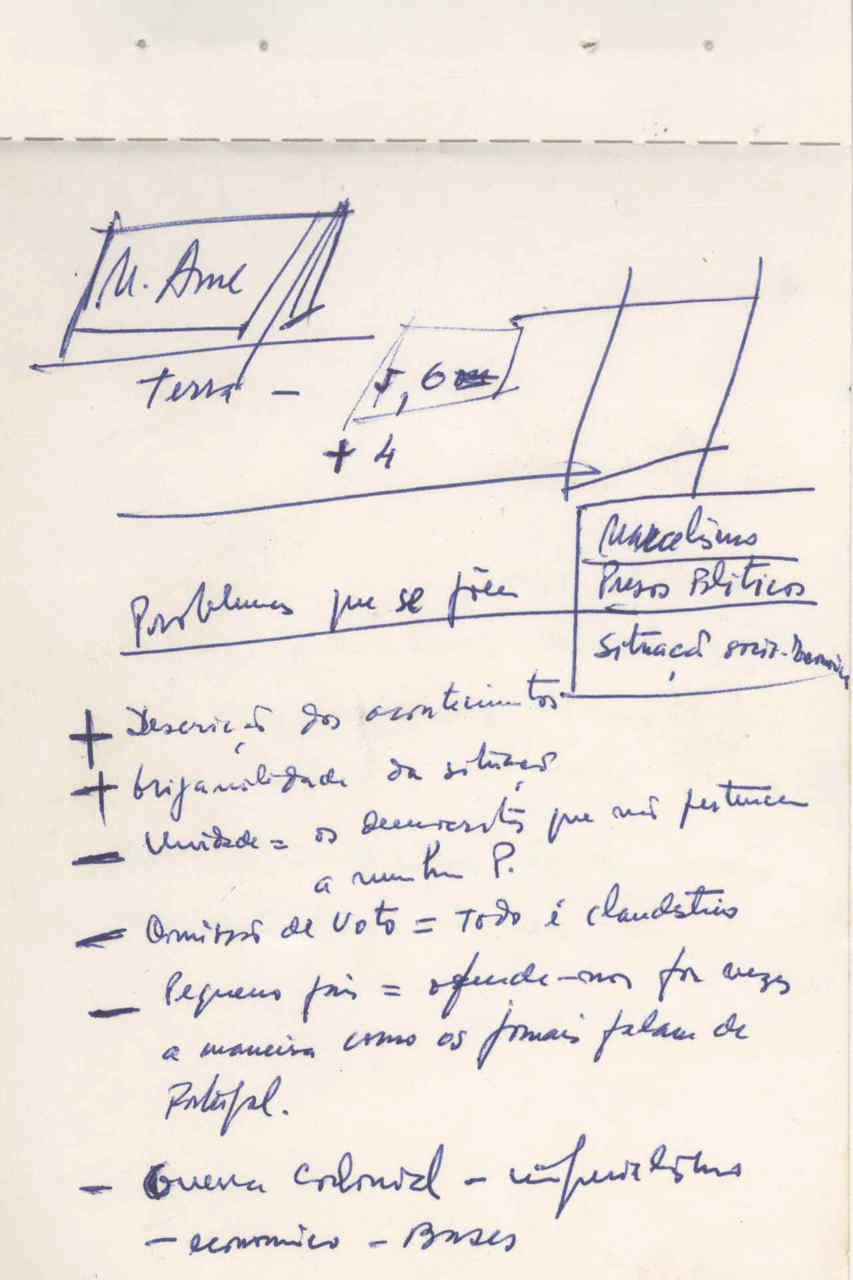 Terra -
5, 6
+ 4
Marcelismo
Presos Políticos
Problemas que se põem
Situação socio-
+ Descrição dos acontecimentos
+ Originalidade da situação
- Unidade = os democratas que não pertencem
a nenhum P.
- Omissão de Voto = Todo é clandestino
- Pequeno país = ofende-nos por vezes
a maneira como os jornais falam de
Portugal.
- Guerra Colonial - imperialismo
- economico - Bases